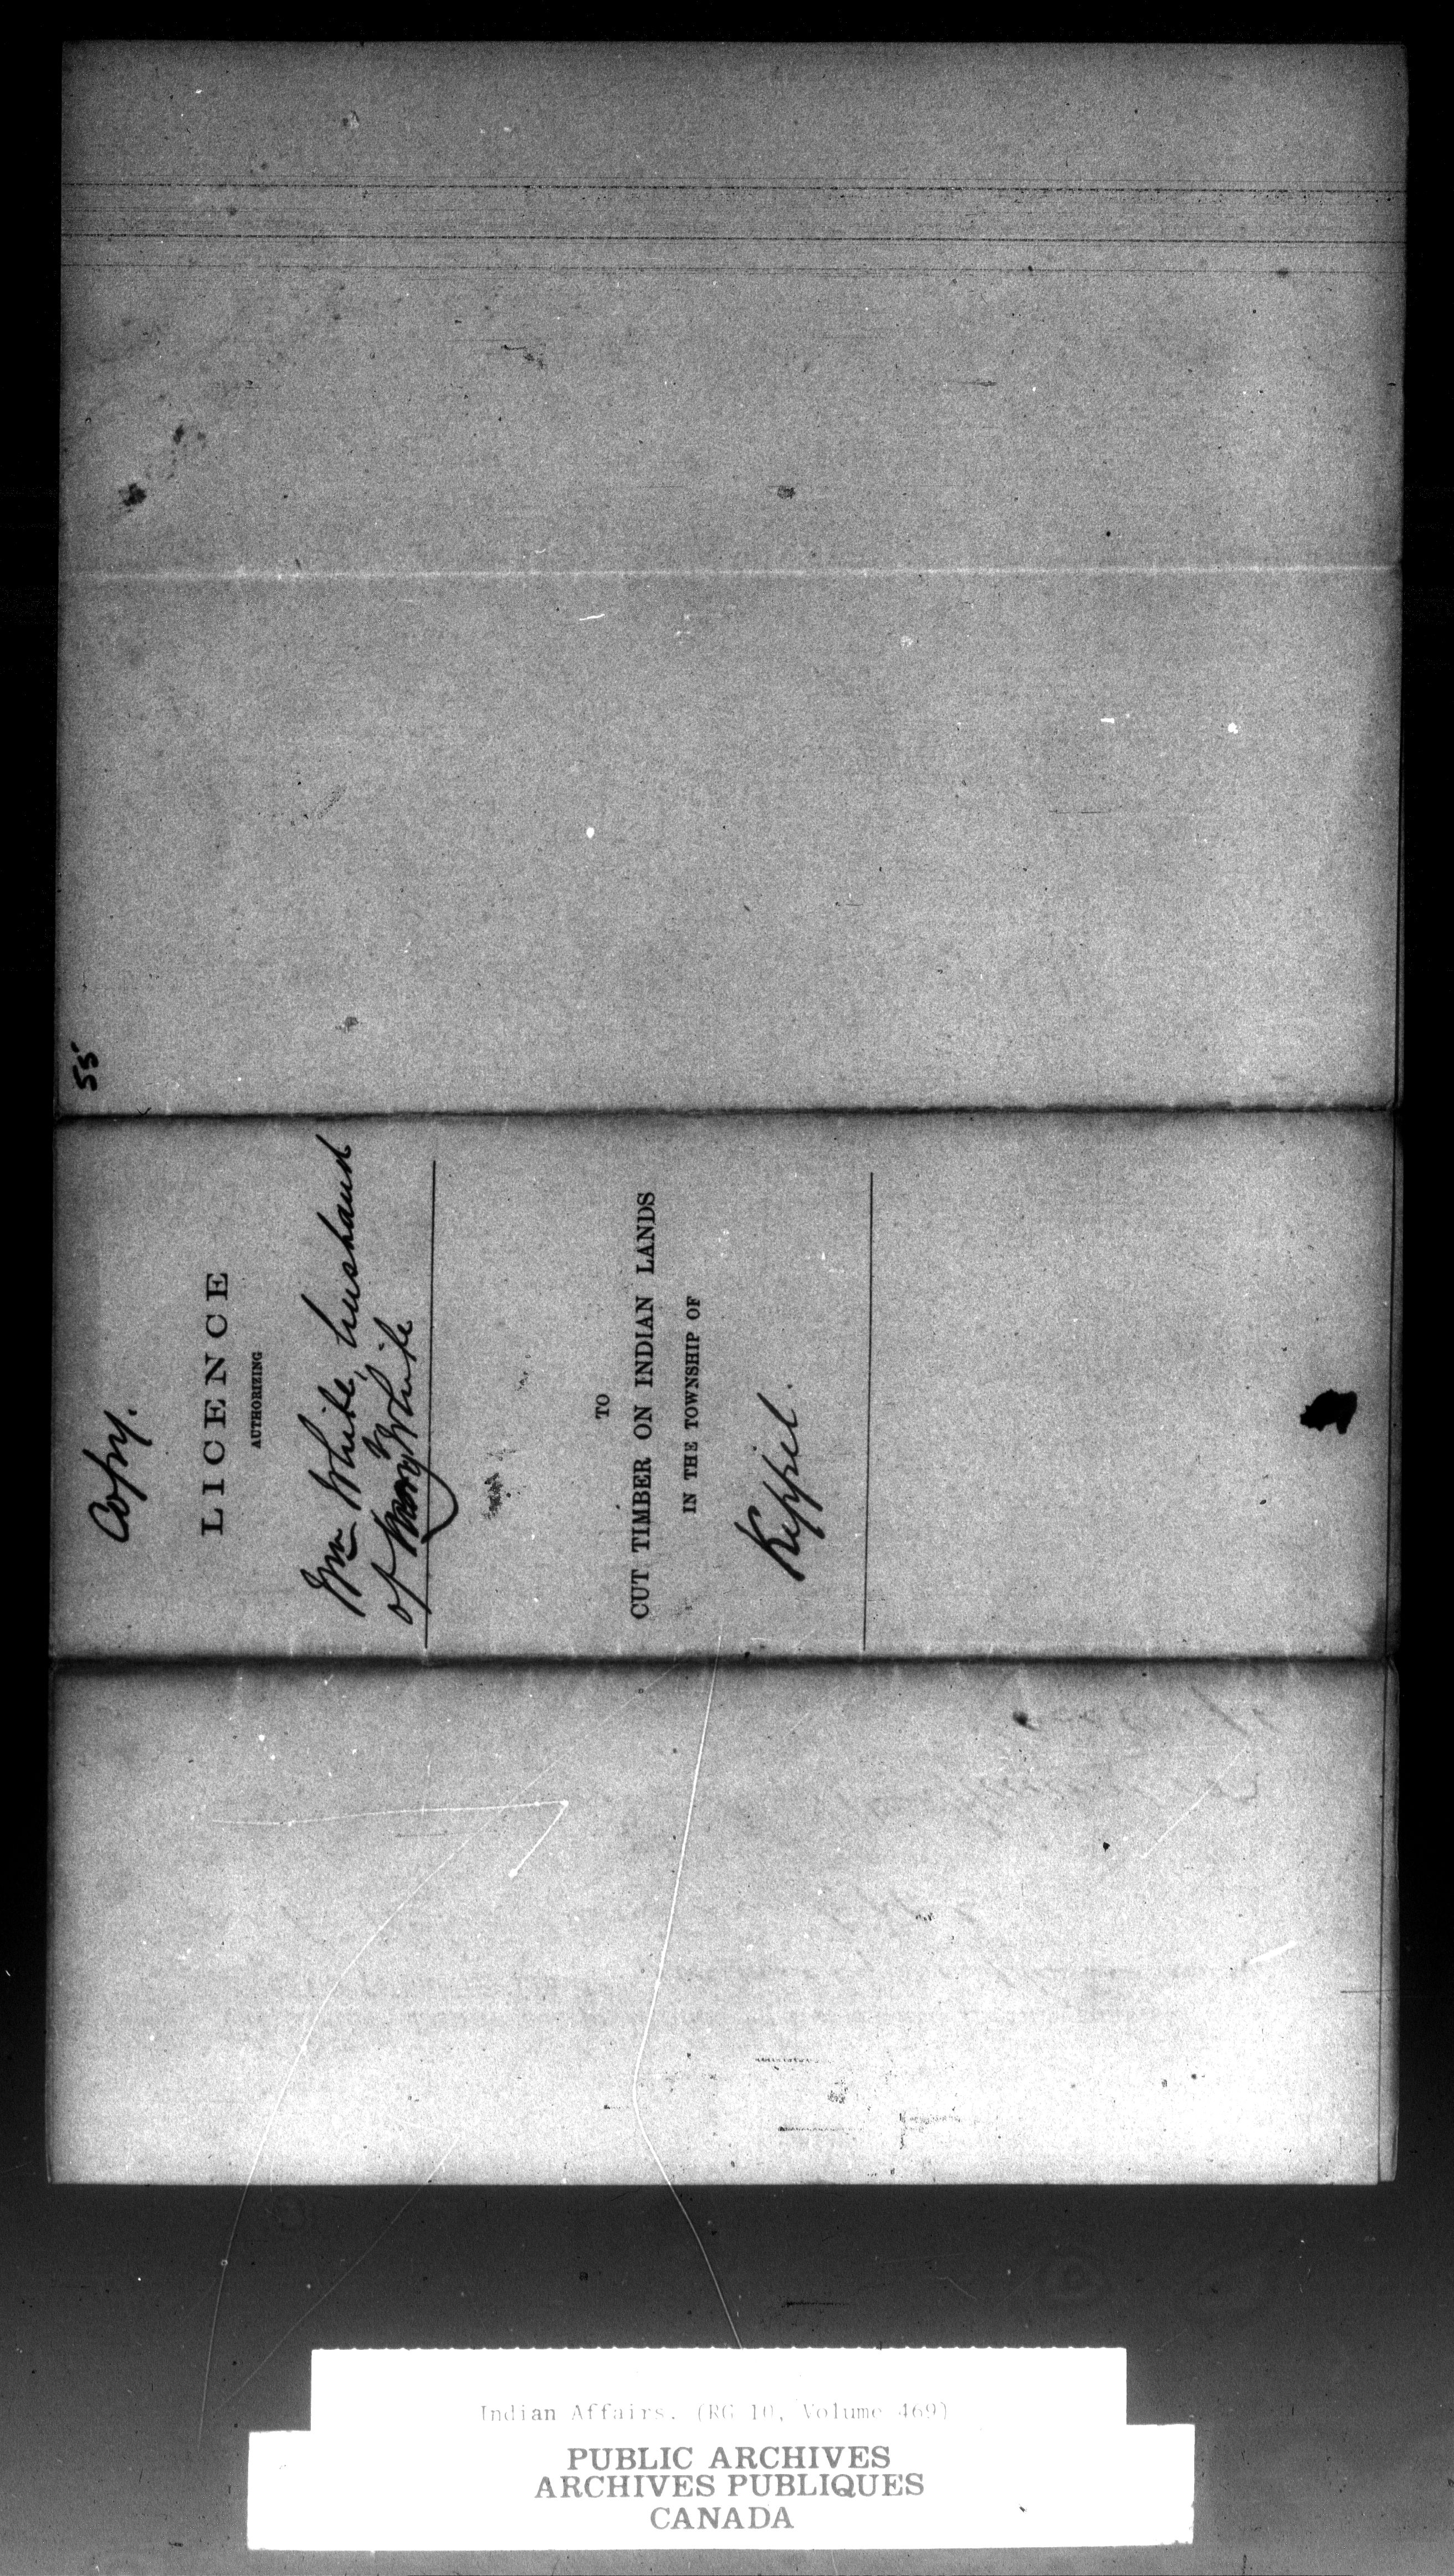 55
Copy.
LICENCE
AUTHORIZING
Wm White, husband
of White
TO
CUT TIMBER ON INDIAN LANDS
IN THE TOWNSHIP OF
Keppel.
Indian Affairs. (RG 10, Volume 469)
PUBLIC ARCHIVES
ARCHIVES PUBLIQUES
CANADA